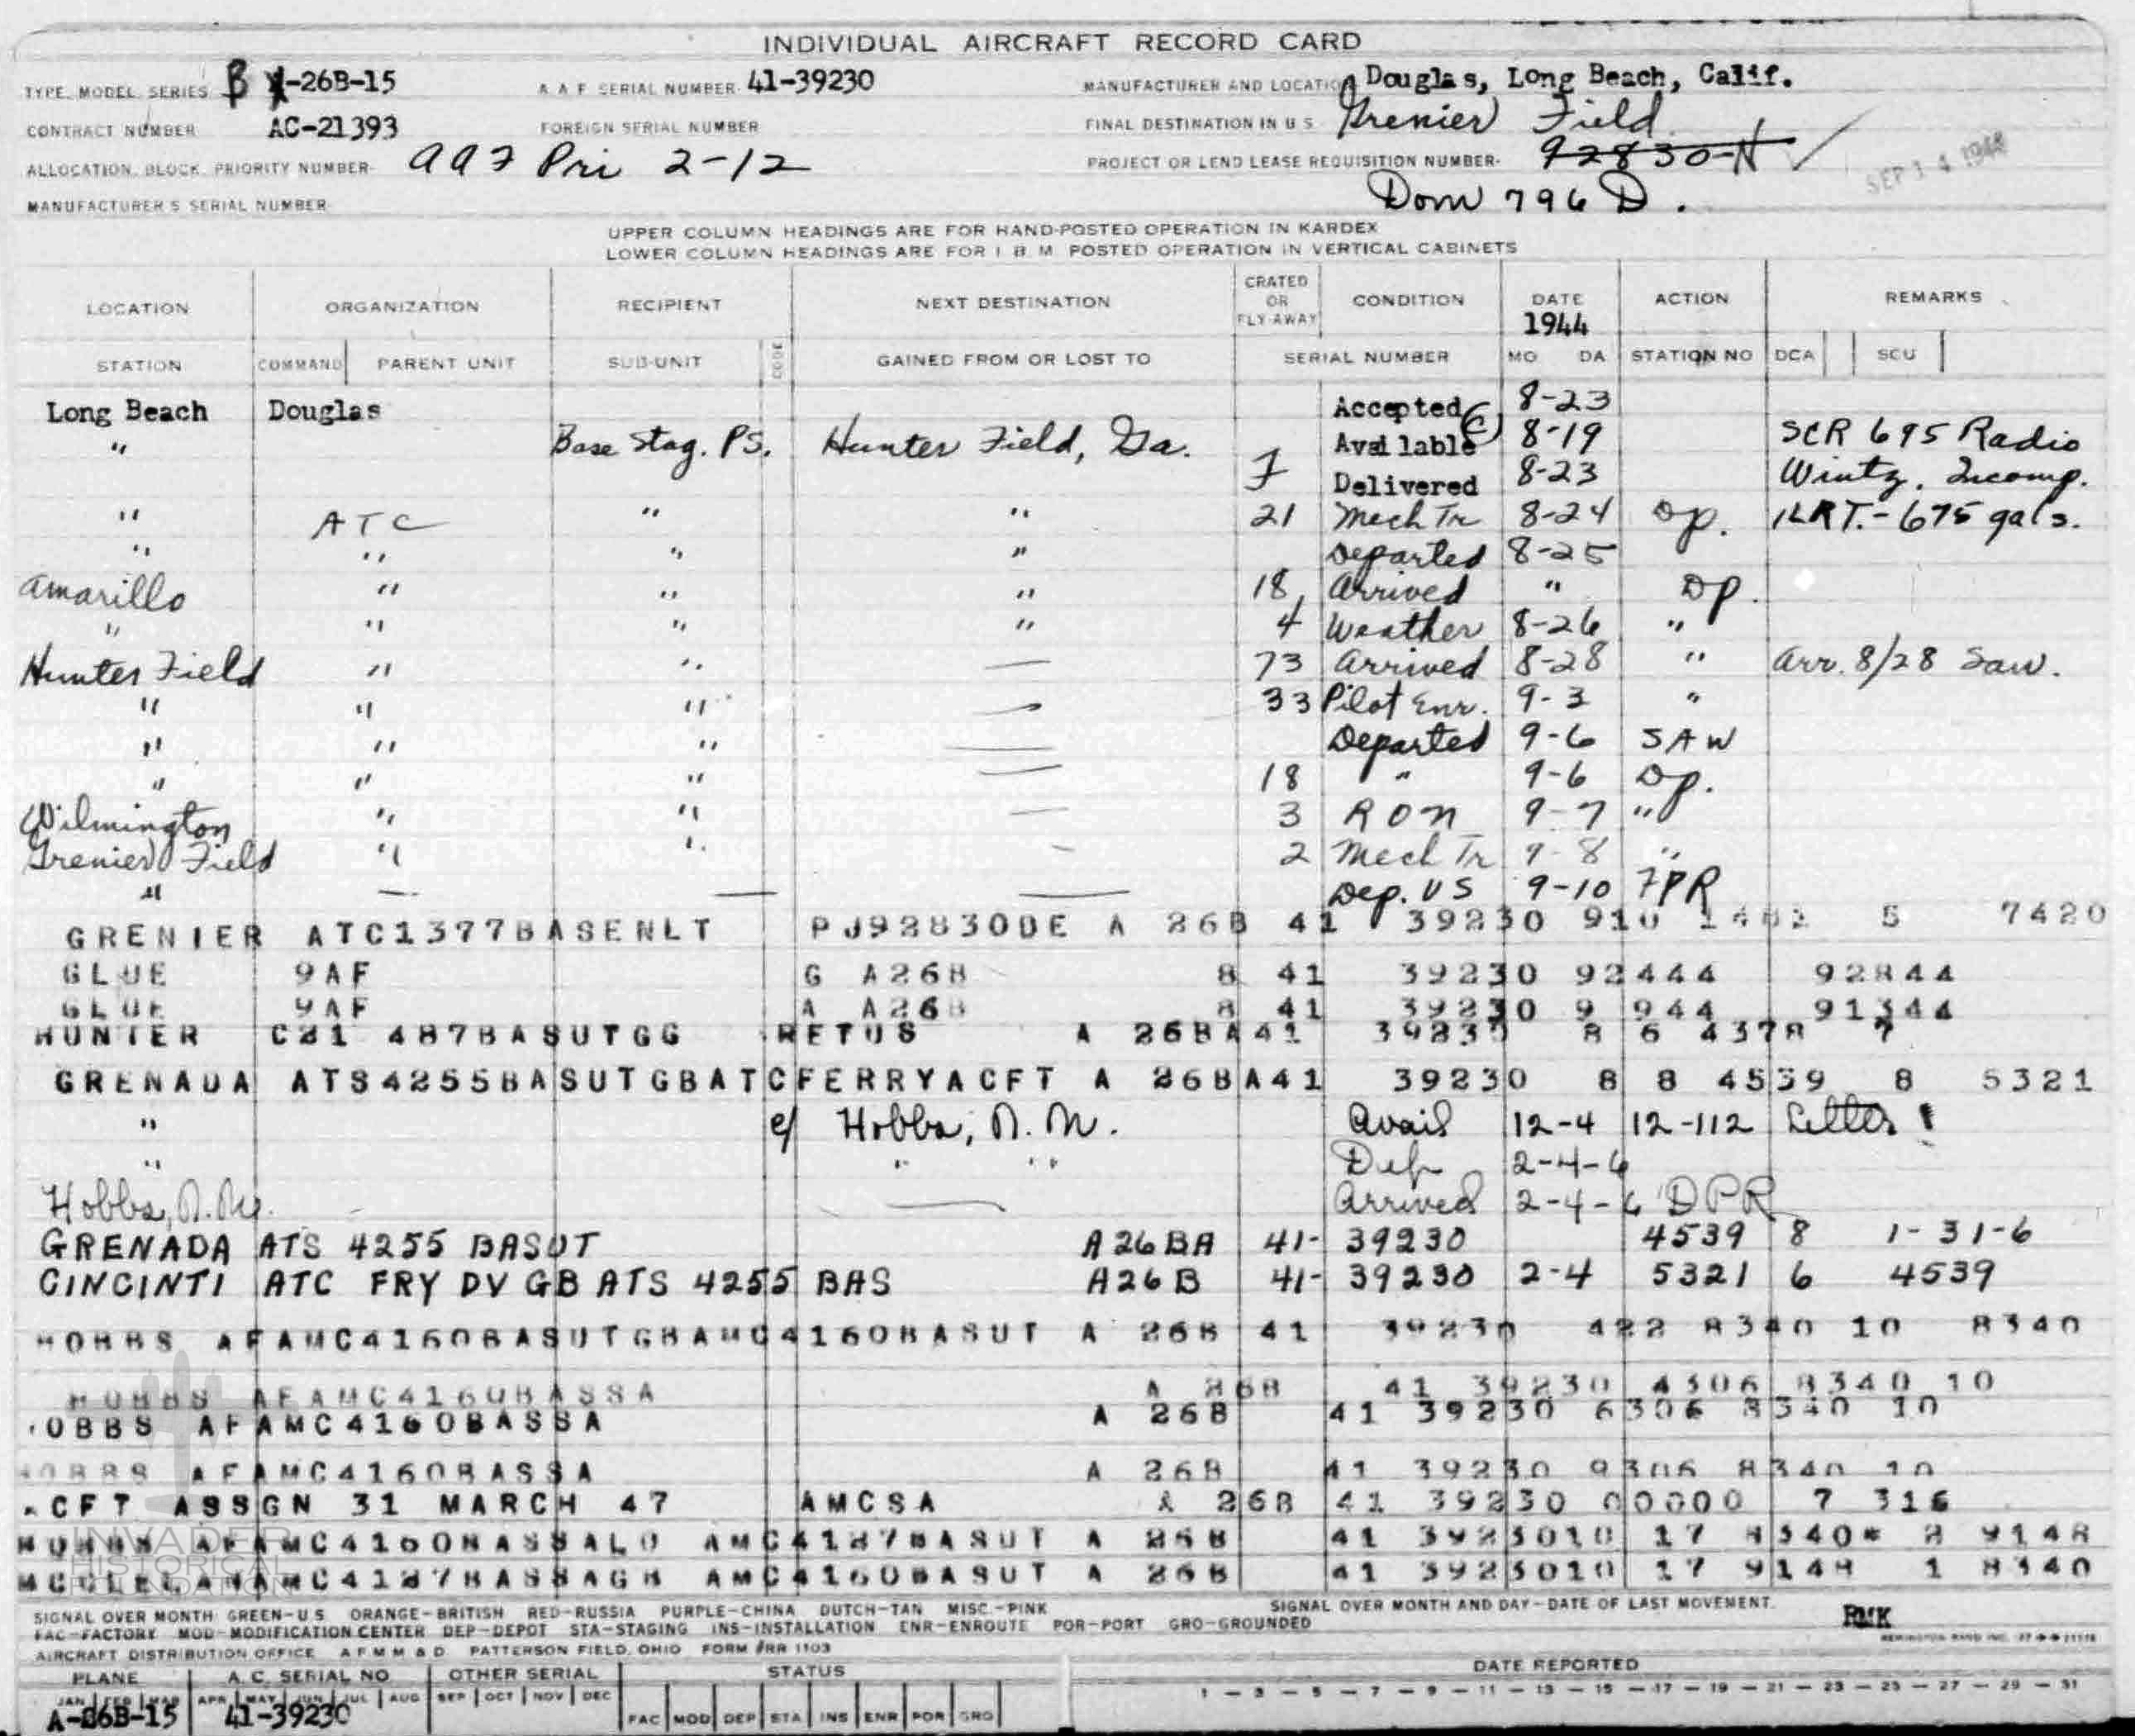 INDIVIDUAL AIRCRAFT RECORD CARD
TYPE, MODEL, SERIES B -26B-15 A A F SERIAL NUMBER 41-39230 MANUFACTURER AND LOCATION Douglas, Long Beach, Calif.
CONTRACT NUMBER AC-21393 FOREIGN SERIAL NUMBER FINAL DESTINATION IN U S Grenier Field
ALLOCATION, BLOCK, PRIORITY NUMBER- AAF Pri 2-12 PROJECT OR LEND LEASE REQUISITION NUMBER- 92830-N
SEP 14 1944
MANUFACTURER'S SERIAL NUMBER Dom 796 D.
UPPER COLUMN HEADINGS ARE FOR HAND-POSTED OPERATION IN KARDEX
LOWER COLUMN HEADINGS ARE FOR I B M POSTED OPERATION IN VERTICAL CABINETS
LOCATION ORGANIZATION RECIPIENT NEXT DESTINATION CRATED OR FLY-AWAY CONDITION DATE 1944 ACTION REMARKS
STATION COMMAND PARENT UNIT SUB-UNIT CODE GAINED FROM OR LOST TO SERIAL NUMBER MO DA STATION NO DCA SCU
Long Beach Douglas Accepted 8-23
" Base Stag. PS. Hunter Field, Ga. Available 8-19 SCR 695 Radio
F Delivered 8-23 Wintz. Incomp.
" ATC " " 21 Mech Tr 8-24 Dp. 1LRT.-675 gals.
" " " " Departed 8-25
Amarillo " " " 18 Arrived " Dp.
" " " " 4 Weather 8-26 "
Hunter Field " " — 73 Arrived 8-28 " Arr. 8/28 Saw.
" " " — 33 Pilot Enr. 9-3 "
" " " — Departed 9-6 SAW
" " " — 18 " 9-6 Dp.
Wilmington " " — 3 RON 9-7 "
Grenier Field " " — 2 Mech Tr 9-8 "
" — — — Dep. US 9-10 FPR
GRENIER ATC1377BASENLT PJ92830DE A 26B 41 39230 910 1482 5 7420
GLUE 9AF G A26B 8 41 39230 92444 92844
GLUE 9AF A A26B 8 41 39230 9 944 91344
HUNTER 487BASUTGG RETUS A 26BA41 39230 8 6 4378 7
GRENADA ATS4255BASUTGBATCFERRYACFT A 26BA41 39230 8 8 4539 8 5321
" Hobbs, N. M. Avail 12-4 12-112 Letter
" " " Dep 2-4-6
Hobbs, N.M. — Arrived 2-4-6 DPR
GRENADA ATS 4255 BASUT A26BA 41- 39230 4539 8 1-31-6
CINCINTI ATC FRY DV GB ATS 4255 BAS A26B 41- 39230 2-4 5321 6 4539
HOBBS AFAMC4160BASUTGBAMC4160BASUT A 26B 41 39230 422 8340 10 8340
HOBBS AFAMC4160BASSA A 26B 41 39230 4306 8340 10
OBBS AFAMC4160BASSA A 26B 41 39230 6306 8340 10
HOBBS AFAMC4160BASSA A 26B 41 39230 9306 8340 10
ACFT ASSGN 31 MARCH 47 AMCSA A 26B 41 39230 00000 7 316
HOBBS AFAMC4160BASSALO AMC4127BASUT A 26B 41 3923010 17 8340* 2 9148
MCCLELANAMC4127BASSAGB AMC4160BASUT A 26B 41 3923010 17 9148 1 8340
INVADER
HISTORICAL
FOUNDATION
SIGNAL OVER MONTH GREEN-U S ORANGE-BRITISH RED-RUSSIA PURPLE-CHINA DUTCH-TAN MISC.-PINK SIGNAL OVER MONTH AND DAY-DATE OF LAST MOVEMENT.
FAC-FACTORY MOD-MODIFICATION CENTER DEP-DEPOT STA-STAGING INS-INSTALLATION ENR-ENROUTE POR-PORT GRO-GROUNDED RMK
AIRCRAFT DISTRIBUTION OFFICE A F M M & D PATTERSON FIELD, OHIO FORM #RR 1103 REMINGTON RAND INC.
PLANE A. C. SERIAL NO OTHER SERIAL STATUS DATE REPORTED
JAN FEB MAR APR MAY JUN JUL AUG SEP OCT NOV DEC 1 - 3 - 5 - 7 - 9 - 11 - 13 - 15 - 17 - 19 - 21 - 23 - 25 - 27 - 29 - 31
A-26B-15 41-39230 FAC MOD DEP STA INS ENR POR GRO